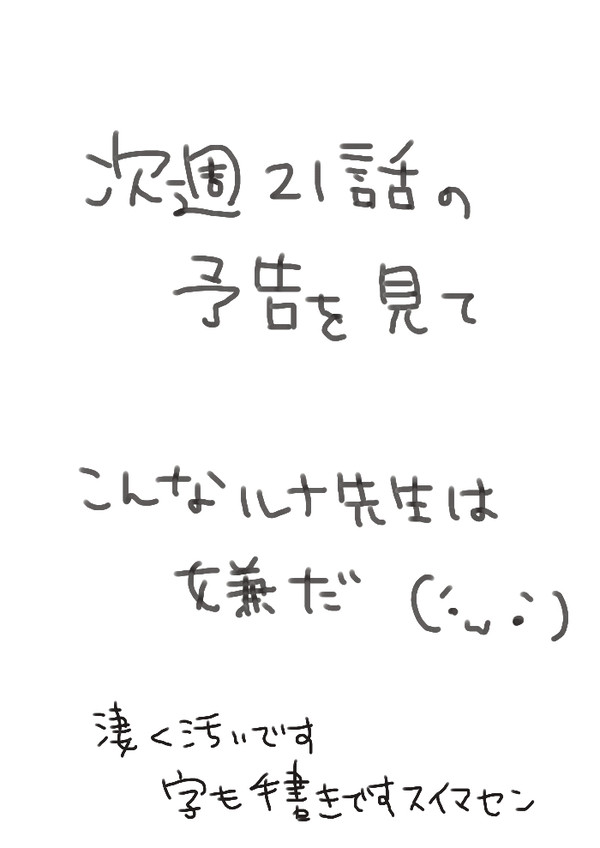 次週21話の
予告を見て
こんなルナ先生は
嫌だ (´･ω･`)
凄く汚いです
字も手書きですスイマセン